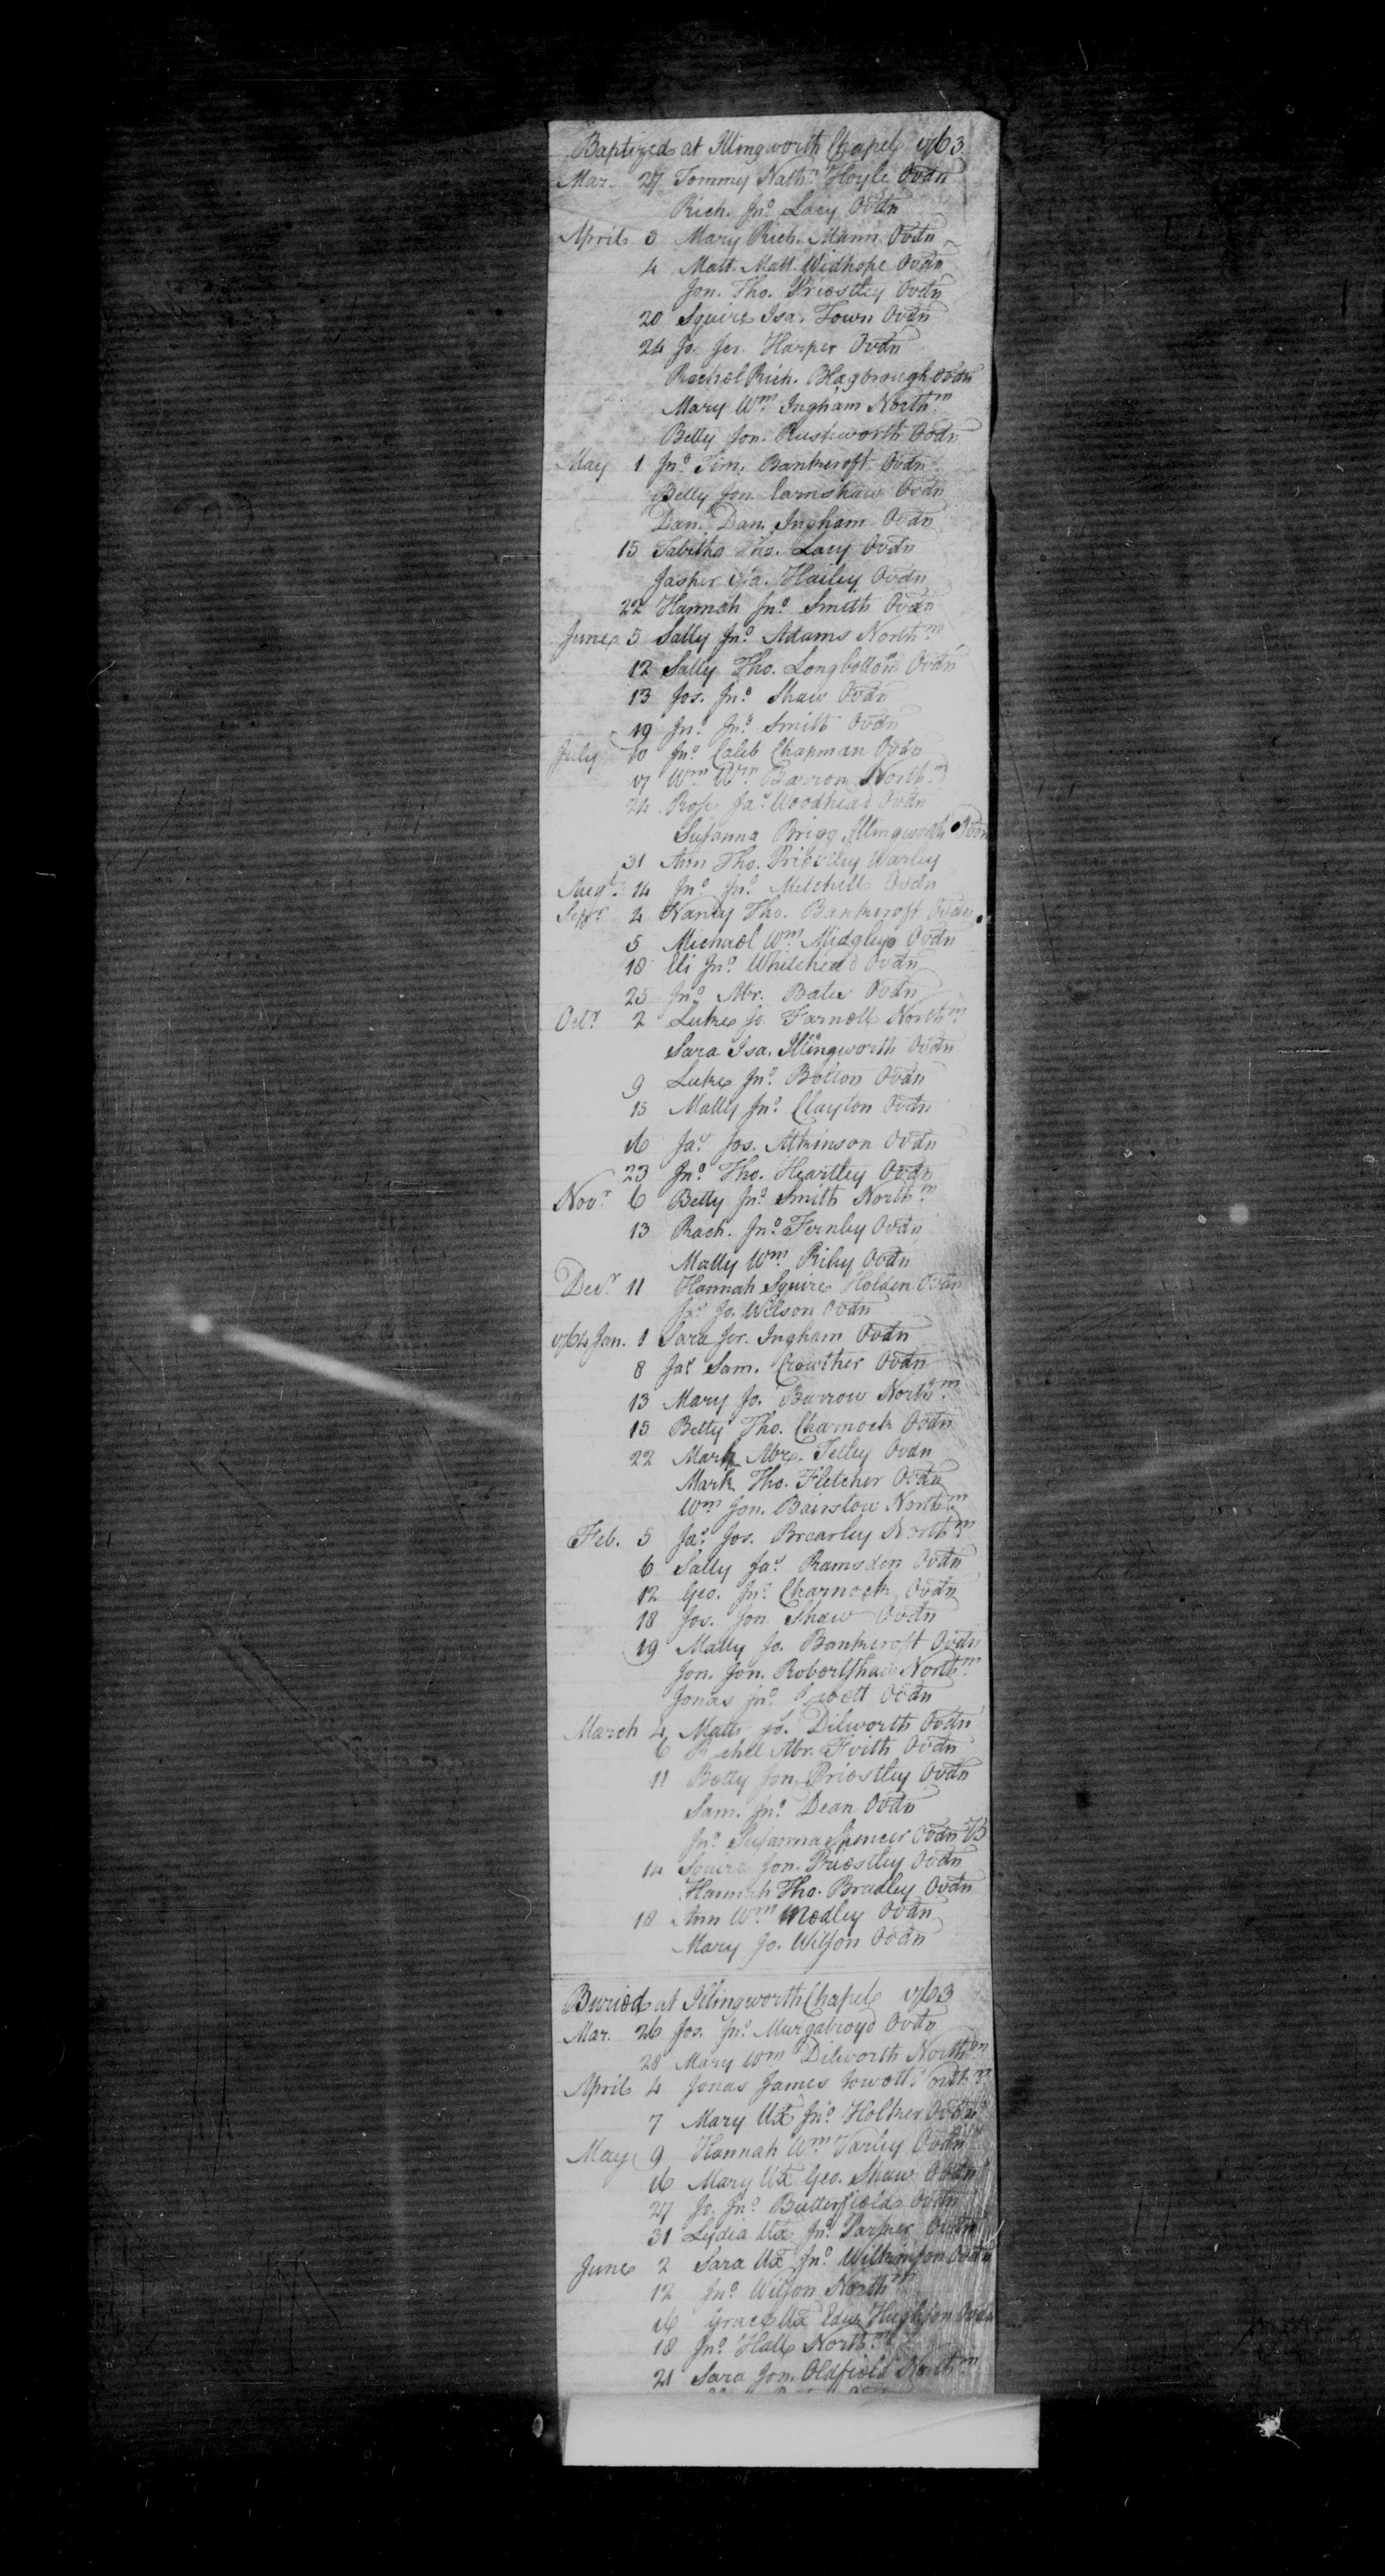 Baptized at Illingworth Chapel 1763
Mar. 27 Tommy Nathn. Hoyle Ovdn
Rich. Jno. Lacy Ovdn
April 3 Mary Rich. Mann Ovdn
4 Matt. Matt. Widhope Ovdn
Jon. Tho. Priestley Ovdn
20 Squire Isa. Town Ovdn
24 Jo. Jer. Harper Ovdn
Rachel Rich. Blagbrough Ovdn
Mary Wm. Ingham Northm.
Betty Jon. Rushworth Ovdn
May 1 Jno. Tim. Bankcroft Ovdn
Betty Jon. Earnshaw Ovdn
Dan. Dan. Ingham Ovdn
15 Tabitha Tho. Lacy Ovdn
Jasper Isa. Hailey Ovdn
22 Hannah Jno. Smith Ovdn
June 5 Sally Jno. Adams Northm.
12 Sally Tho. Longbottom Ovdn
13 Jos. Jno. Shaw Ovdn
19 Jno. Jno. Smith Ovdn
July 10 Jno. Caleb Chapman Ovdn
17 Wm. Wm. Barron Northm.
24 Jas. Woodhead Ovdn
Susanna Brigg Illingworth Ovdn
31 Ann Tho. Priestley Warley
Augt. 14 Jno. Jno. Mitchell Ovdn
Sepr. 4 Nancy Tho. Bankcroft Ovdn
5 Michael Wm. Midgley Ovdn
18 Eli Jno. Whitehead Ovdn
25 Jno. Abr. Bates Ovdn
Octr. 2 Luke Jo. Farnell Northm.
Sara Isa. Illingworth Ovdn
9 Luke Jno. Bolton Ovdn
15 Mally Jno. Clayton Ovdn
16 Jas. Jos. Atkinson Ovdn
23 Jno. Tho. Heartley Ovdn
Novr. 6 Betty Jno. Smith Northm.
13 Rach. Jno. Fernley Ovdn
Mally Wm. Riley Ovdn
Decr. 11 Hannah Squire Holden Ovdn
Jas. Jo. Wilson Ovdn
1764 Jan. 1 Sara Jer. Ingham Ovdn
8 Jas. Sam. Crowther Ovdn
13 Mary Jo. Barrow Northm.
15 Betty Tho. Charnock Ovdn
22 Mark Abr. Tetley Ovdn
Mark Tho. Fletcher Ovdn
Wm. Jon. Bairstow Northm.
Feb. 5 Jas. Jos. Brearley Northm.
6 Sally Jas. Ramsden Ovdn
12 Geo. Jno. Charnock Ovdn
18 Jos. Jon. Shaw Ovdn
19 Mally Jo. Bankcroft Ovdn
Jon. Jon. Robertshaw Northm.
Jonas Jno. Ovdn
March 4 Matt. Jo. Dilworth Ovdn
6 Abr. Frith Ovdn
11 Betty Jon. Priestley Ovdn
Sam. Jno. Dean Ovdn
Jno. Susanna Spencer Ovdn B
14 Squire Jon. Priestley Ovdn
Hannah Tho. Bradley Ovdn
18 Ann Wm. Medley Ovdn
Mary Jo. Wilson Ovdn
Buried at Illingworth Chapel 1763
Mar. 26 Jos. Jno. Murgatroyd Ovdn
28 Mary Wm. Dilworth Northm.
April 4 Jonas James Northm.
7 Mary Ux Jno. Holker Ovdn
May 9 Hannah Wm. Varley Ovdn
16 Mary Ux Geo. Shaw Ovdn
27 Jo. Jno. Butterfield Ovdn
31 Lydia Ux Jno. Parker Ovdn
June 2 Sara Ux Jno. Wilkinson Ovdn
12 Jno. Wilson Northm.
16 Grace Ux Edw. Hughson Ovdn
18 Jno. Hall Northm.
21 Sara Jon. Oldfield Northm.